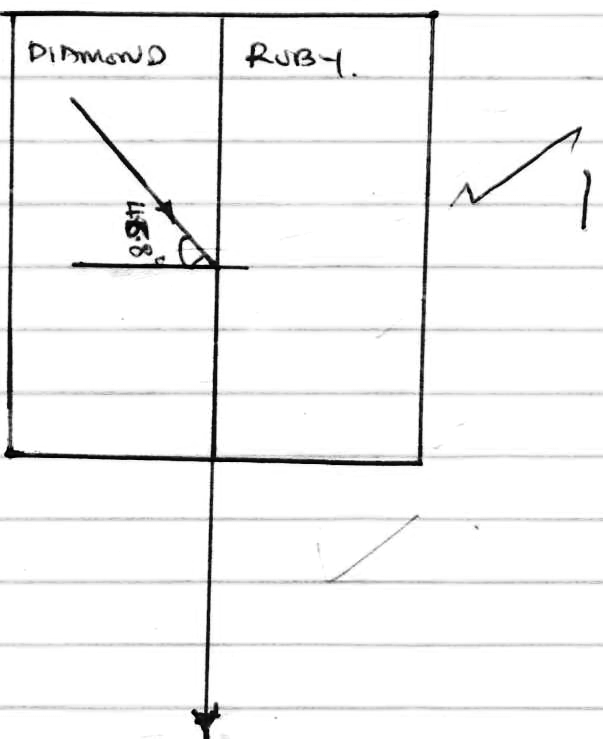 DIAMOND RUBY.
1